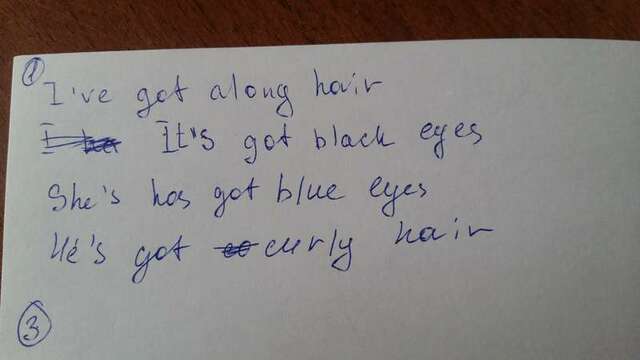 1
I've got along hair
It's got black eyes
She's has got blue eyes
He's got curly hair
3